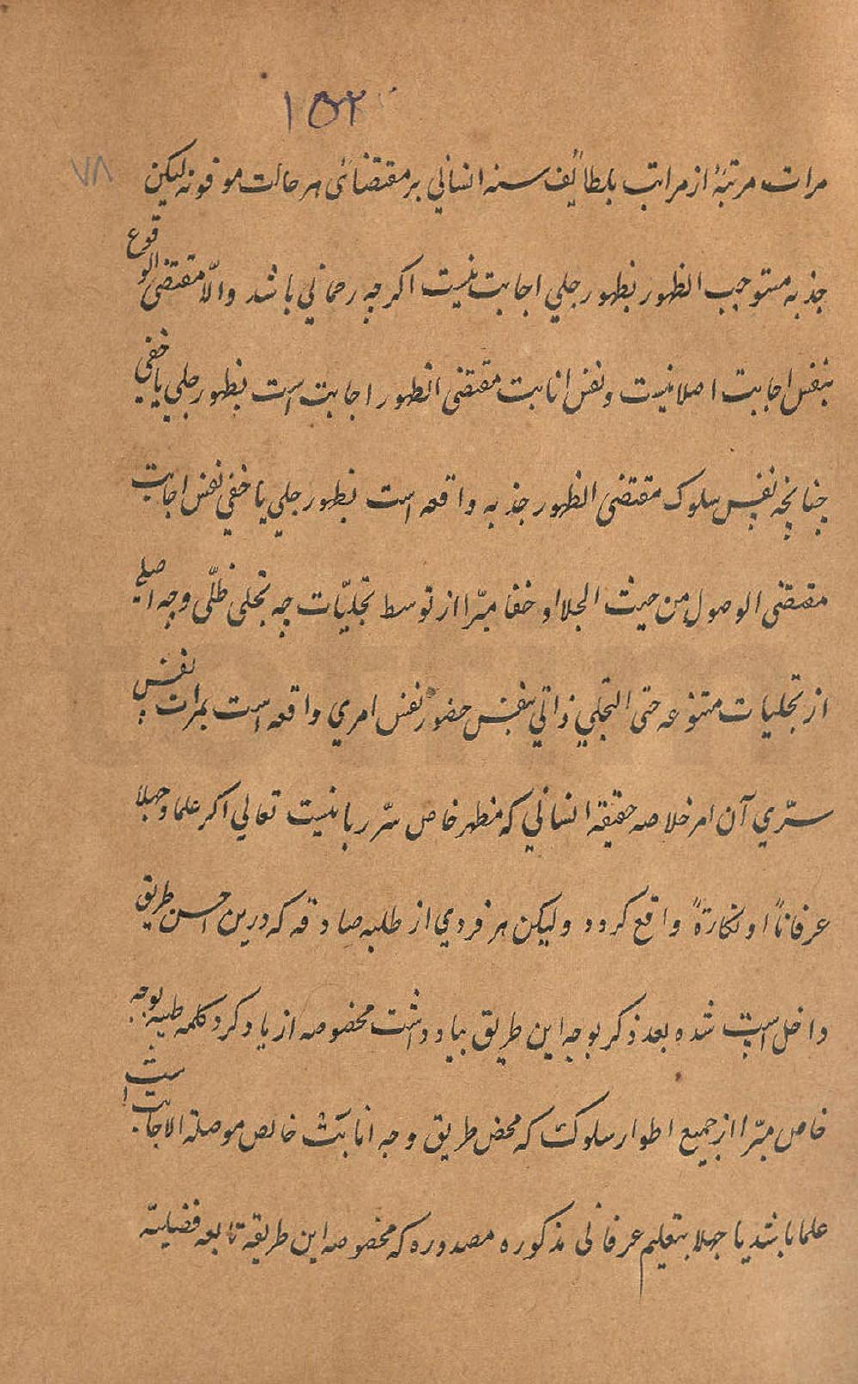 ۱۵۲
۷۸
مرات مرتبهٔ از مراتب بلطائف سته انسانی بر مقتضائی هر حالت موقونه لیکن
جذبه مستوجب الظهور بظهور جلی اجابت نیست اکرچه رحمانی باشد والّا مقتضی الوقوع
بنفس اجابت اصلا نیست ونفس انابت مقتضی الظهور اجابت است بظهور جلی یا خفی
چنانچه نفس سلوک مقتضی الظهور جذبه واقعه است بظهور جلی یا خفی نفس اجابت
مقتضی الوصول من حیث الجلا او خفا مبرّا از توسط تجلیّات چه تجلی ظلّی وچه اصلی
از تجلیات متنوعه حتی التجلی ذاتی بنفس حضور نفس امری واقعه است بمرات نفس
سرّی آن امر خلاصه حقیقة انسانی که مظهر خاص سّر ربانیست تعالی اکر علما وجهلا
عرفاناً او نکارةً واقع کردد ولیکن هر فردی از طلبه صادقه که درین احسن طریق
داخل است شده بعد ذکر بوجه این طریق بیادداشت مخصوصه از یادکرد کلمه طیبه بوجه
خاص مبرّا از جمیع اطوار سلوک که محض طریق وجه انابتش خالص موصلة الاجابت است
علما باشد یا جهلا بتعلیم عرفانی مذکوره مصدوره که مخصوصه این طریقه تابعه فضیلیّه